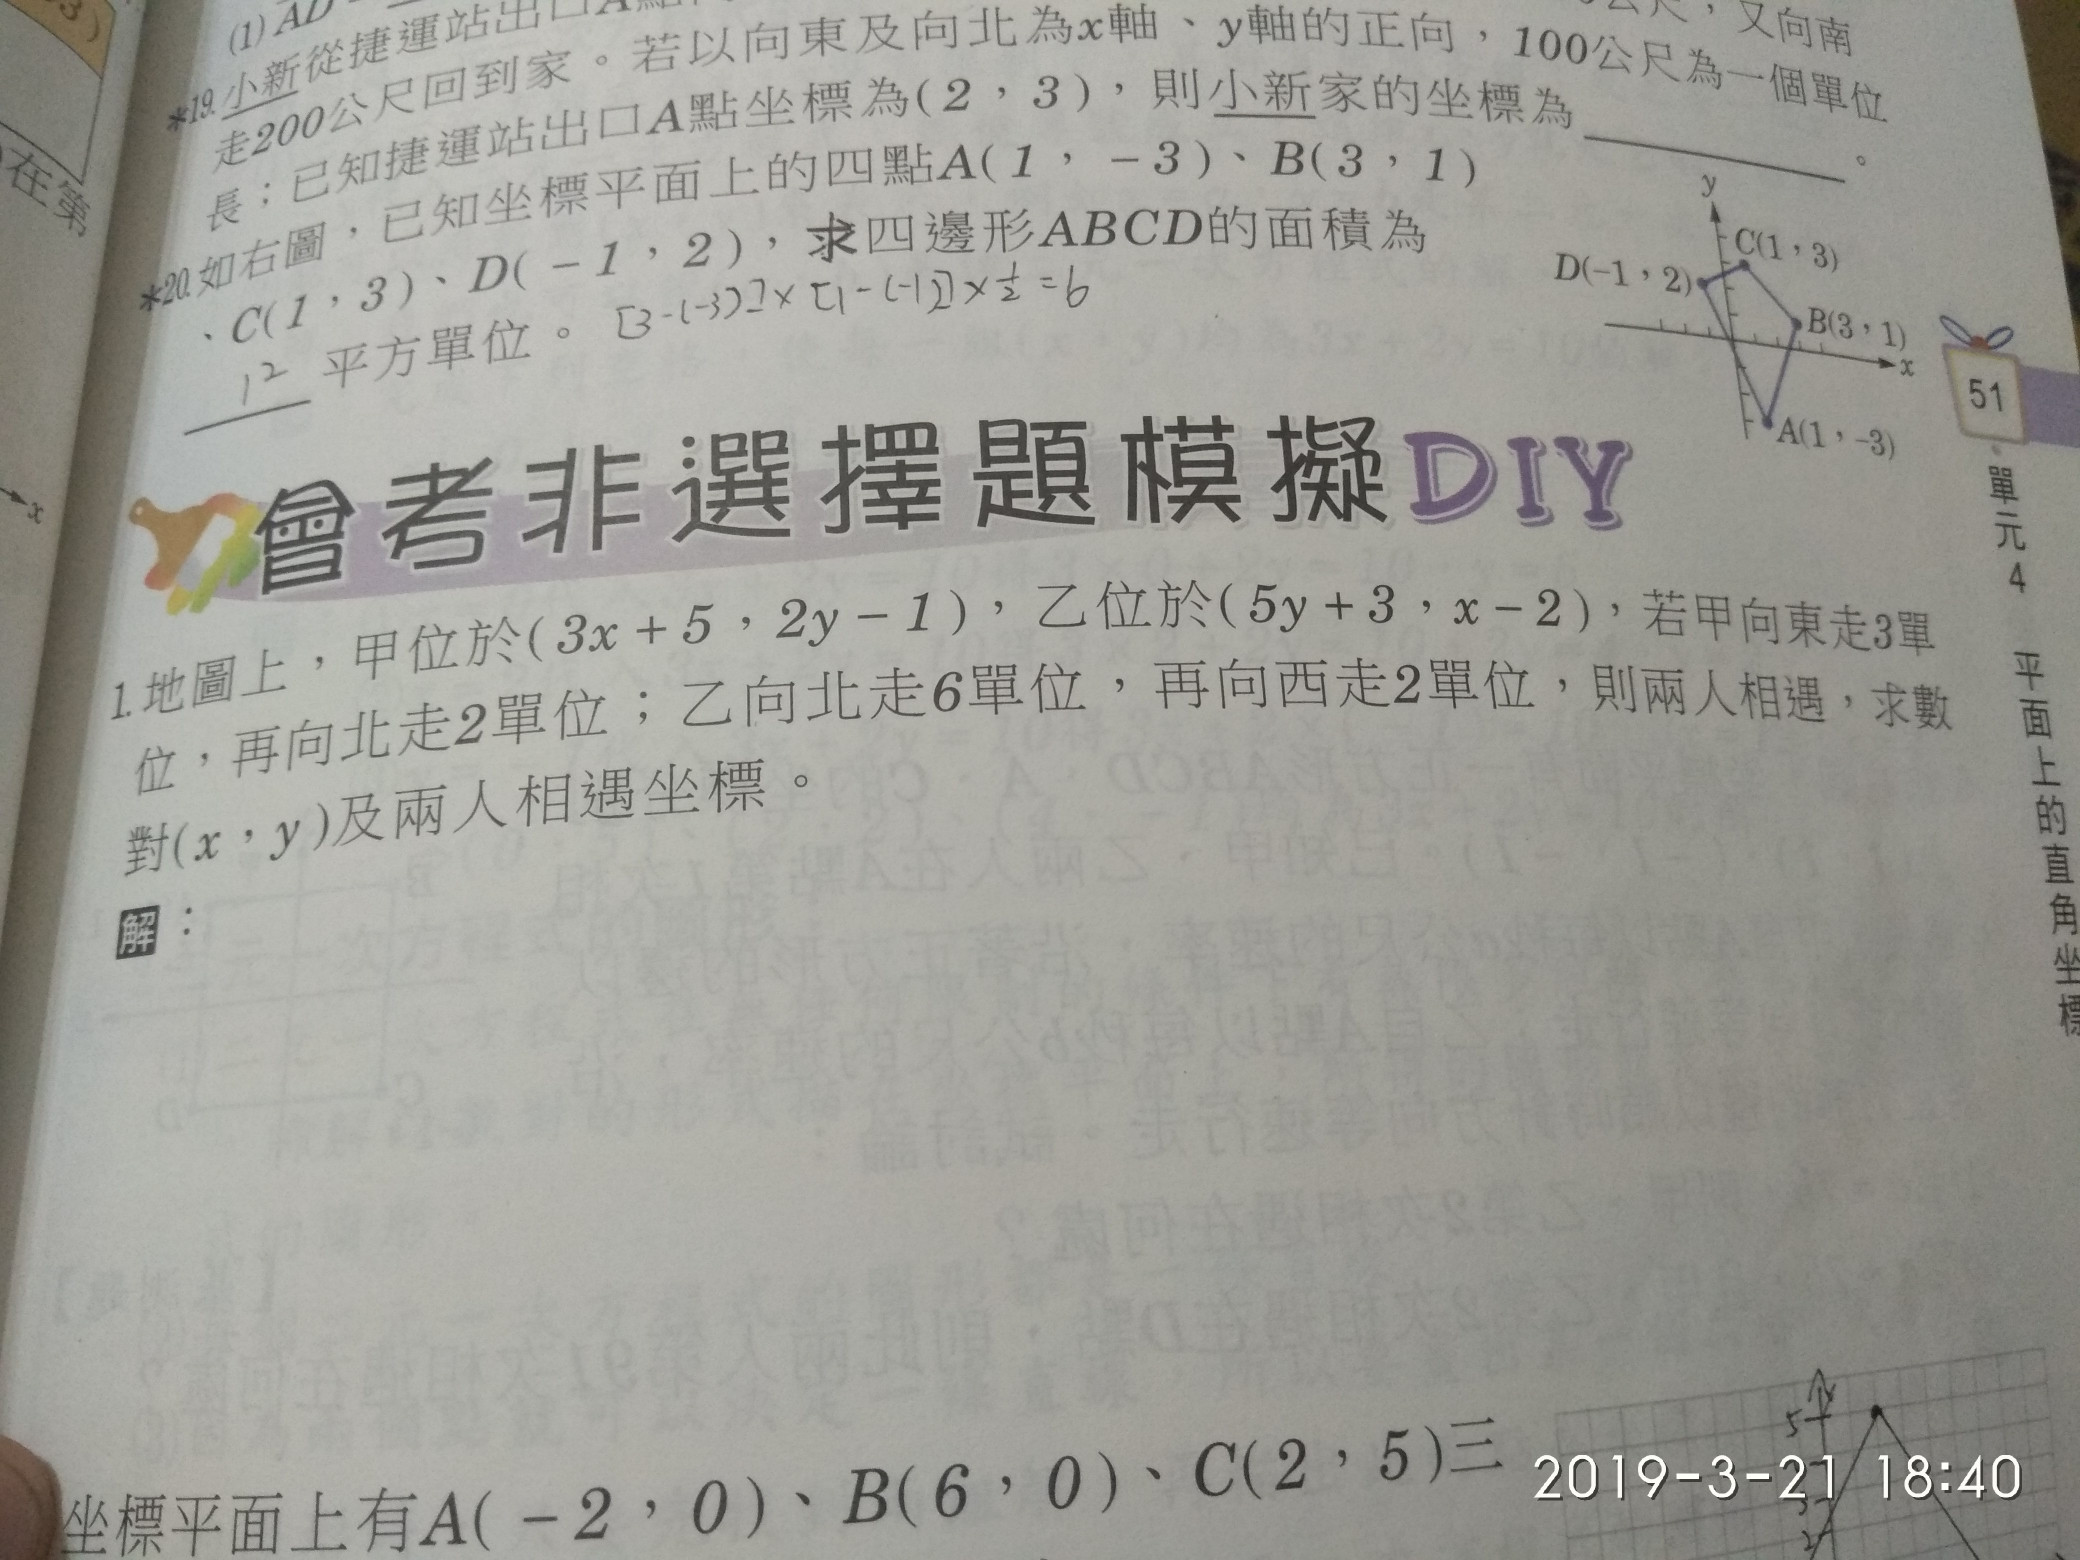 (1) AD
*19. 小新從捷運站出口A點 公尺，又向南
走200公尺回到家。若以向東及向北為x軸、y軸的正向，100公尺為一個單位
長；已知捷運站出口A點坐標為(2，3)，則小新家的坐標為
。
*20. 如右圖，已知坐標平面上的四點A(1，-3)、B(3，1)
、C(1，3)、D(-1，2)，求四邊形ABCD的面積為
12 平方單位。
y
C(1，3)
D(-1，2)
B(3，1)
x
A(1，-3)
51
單元4 平面上的直角坐標
在第
x
會考非選擇題模擬DIY
1. 地圖上，甲位於(3x+5，2y-1)，乙位於(5y+3，x-2)，若甲向東走3單
位，再向北走2單位；乙向北走6單位，再向西走2單位，則兩人相遇，求數
對(x，y)及兩人相遇坐標。
解：
坐標平面上有A(-2，0)、B(6，0)、C(2，5)三
y
5
3
2
2019-3-21 18:40